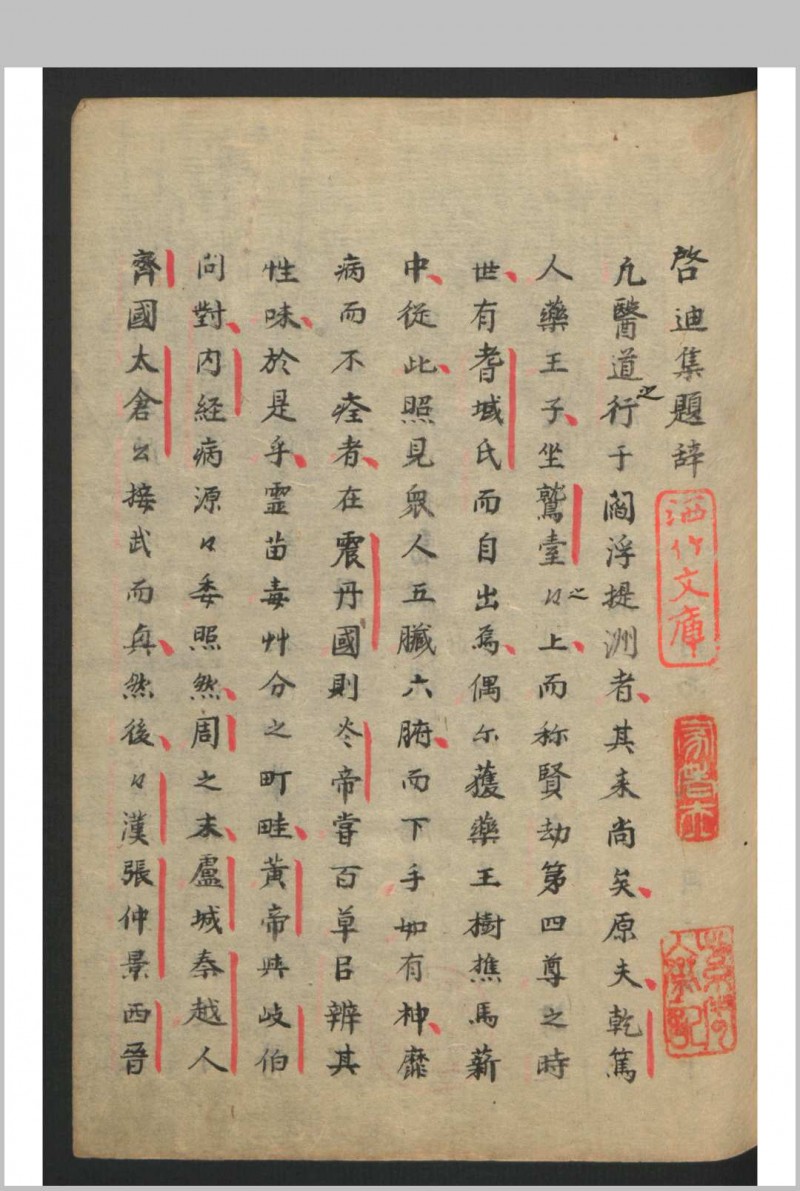 啓迪集題辞
凢醫道之行于閻浮提洲者其来尚矣原夫乾篤
人藥王子坐鷲臺々之上而称賢劫第四尊之時
世有耆域氏而自出為偶尓獲藥王樹樵馬薪
中従此照見衆人五臓六腑而下手如有神靡
病而不痊者在震丹國則炎帝嘗百草㠯辨其
性味於是乎霊苗毒艸分之町畦黄帝與岐伯
问對内経病源々委照然周之末盧城秦越人
齊國太倉公接武而興然後々漢張仲景西晉
文庫